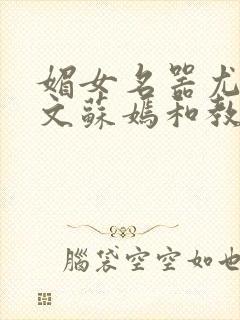 媚女名器尤
文蘇媽和教
腦袋空空如也